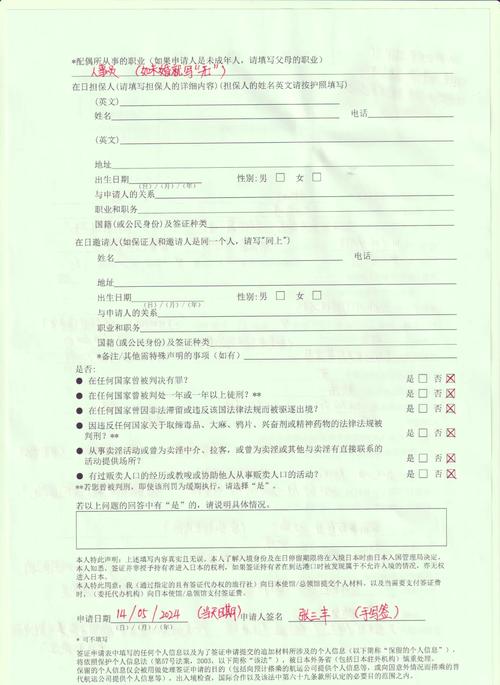 *配偶所从事的职业（如果申请人是未成年人，请填写父母的职业）
人事员 （如未婚就写“无”）
在日担保人(请填写担保人的详细内容)(担保人的姓名英文请按护照填写)
(英文)
姓名 电话
(英文)
地址
出生日期 性别:男 □ 女 □
（日）/（月）/（年）
与申请人的关系
职业和职务
国籍(或公民身份)及签证种类
在日邀请人(如保证人和邀请人是同一个人，请写"同上")
姓名 电话
地址
出生日期 性别:男 □ 女 □
（日）/（月）/（年）
与申请人的关系
职业和职务
国籍(或公民身份)及签证种类
*备注/其他需特殊声明的事项（如有）
是否:
● 在任何国家曾被判决有罪? 是 □ 否 ☒
● 在任何国家曾被判处一年或一年以上徒刑？** 是 □ 否 ☒
● 在任何国家曾因非法滞留或违反该国法律法规而被驱逐出境? 是 □ 否 ☒
● 因违反任何国家关于取缔毒品、大麻、鸦片、兴奋剂或精神药物的法律法规被 是 □ 否 ☒
判刑？**
● 从事卖淫活动或曾为卖淫中介、拉客，或曾为卖淫或其他与卖淫有直接联系的 是 □ 否 ☒
活动提供场所?
● 有过贩卖人口的经历或教唆或协助他人从事贩卖人口的活动? 是 □ 否 ☒
**若您曾被判刑，即使该刑罚为缓期执行，请选择“是”。
若以上问题的回答中有“是”的，请说明具体情况。
本人特此声明：上述填写内容真实且无误。本人了解入境身份及在日停留期限将在入境日本时由日本入国管理局决定。
本人知悉，签证并非授予持有者进入日本的权利，如果签证持有者在到达港口时被发现属于不允许入境的情况，亦无权
进入日本。
本人特此同意：我（通过指定的具有签证代办权的旅行社）向日本使馆/总领馆提交个人材料，以及当需要支付签证费
时，（委托代办机构）向日本使馆/总领馆支付签证费。
申请日期 14/05/2024 (当天日期) 申请人签名 张三丰 (手写签)
（日）/（月）/（年）
* 可不填写
签证申请表中填写的任何个人信息以及为了签证申请提交的追加材料所涉及的个人信息（以下简称“保留的个人信息”）
将依照保护个人信息法（第57号法案，2003，以下简称“该法”），被日本外务省（包括日本驻外机构）慎重处理。
保留的个人信息仅会被用做处理签证申请的目的（包括向预计搭乘的航运公司提供个人信息等，或向因意外情况而搭乘的替
代航运公司提供个人信息等），出入境检查、国际合作以及该法中第六十九条款所认定的必要且有限的范围之内。